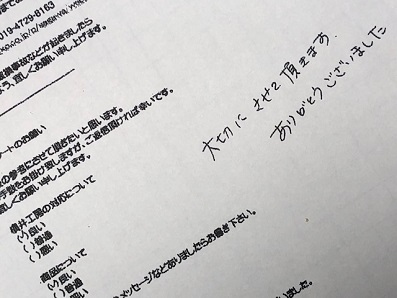 019-4729-8163
破損事故などが起きましたら
よう、宜しくお願い申し上げます。
ートのお願い
の参考にさせて頂きたいと思います。
手数をお掛け致しますが、ご返信頂ければ幸いです。
宜しくお願い申し上げます。
横井工房の対応について
(✓)良い
( )普通
( )悪い
商品について
(✓)良い
( )普通
( )悪い
メッセージなどありましたらお書き下さい。
いました。
大切にさせて頂きます。
ありがとうございました